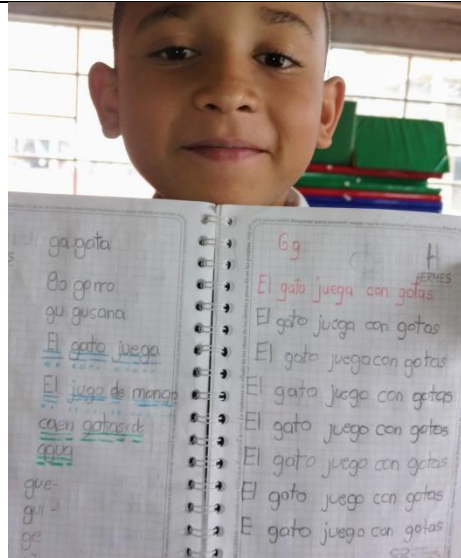 ga gata
go gorro
gu gusana
El gato juega
El jugo de mango
caen gotas de
agua
gue-
gui-
ge
Gg
HERMES
El gato juega con gotas
El gato juega con gotas
El gato juega con gotas
El gato juego con gotas
El gato juego con gotas
El gato juego con gotas
El gato juego con gotas
E gato juego con gotas